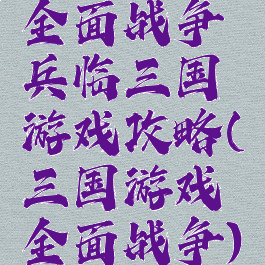 全面战争
兵临三国
游戏攻略(
三国游戏
全面战争)